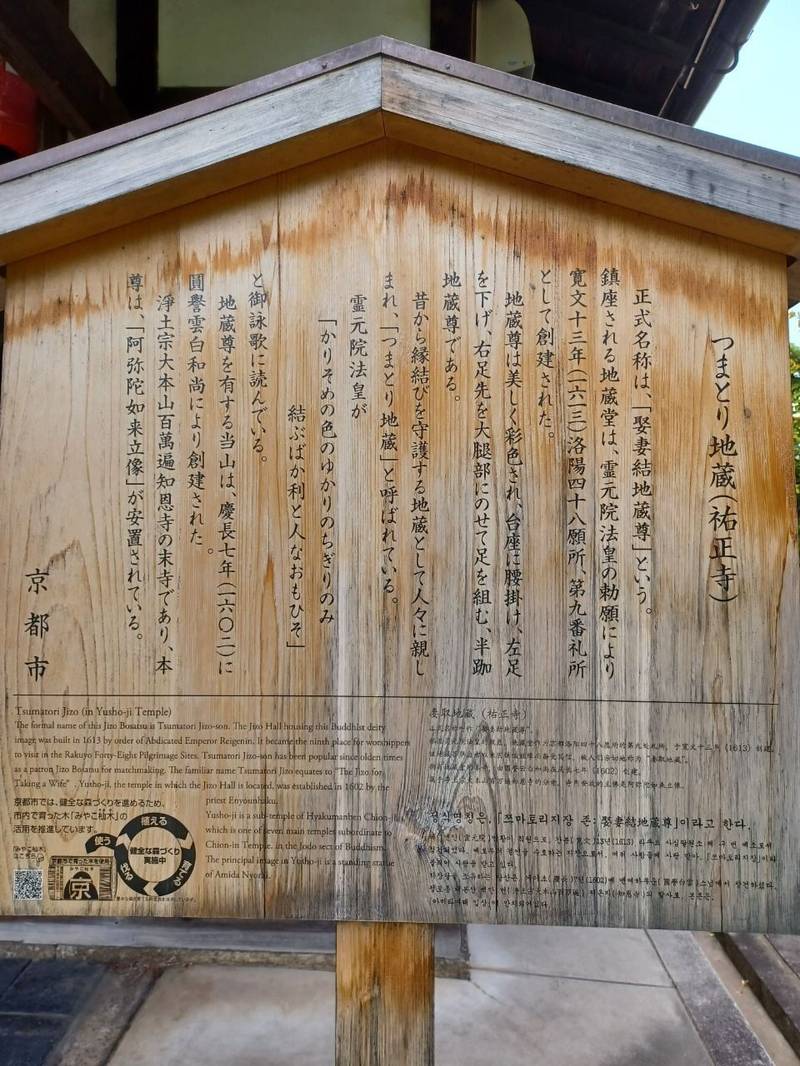 つまとり地蔵(祐正寺)
正式名称は、「娶妻結地蔵尊」という。
鎮座される地蔵堂は、霊元院法皇の勅願により
寛文十三年(一六一三)洛陽四十八願所、第九番札所
として創建された。
地蔵尊は美しく彩色され、台座に腰掛け、左足
を下げ、右足先を大腿部にのせて足を組む、半跏
地蔵尊である。
昔から縁結びを守護する地蔵として人々に親し
まれ、「つまとり地蔵」と呼ばれている。
霊元院法皇が
「かりそめの色のゆかりのちぎりのみ
結ぶばか利と人なおもひそ」
と御詠歌に読んでいる。
地蔵尊を有する当山は、慶長七年(一六〇二)に
圓譽雲白和尚により創建された。
浄土宗大本山百萬遍知恩寺の末寺であり、本
尊は、「阿弥陀如来立像」が安置されている。
京都市
Tsumatori Jizo (in Yusho-ji Temple)
The formal name of this Jizo Bosatsu is Tsumatori Jizo-son. The Jizo Hall housing this Buddhist deity
image was built in 1613 by order of Abdicated Emperor Reigenin. It became the ninth place for worshippers
to visit in the Rakuyo Forty-Eight Pilgrimage Sites. Tsumatori Jizo-son has been popular since olden times
as a patron Jizo Bosatsu for matchmaking. The familiar name Tsumatori Jizo equates to "The Jizo for
Taking a Wife". Yusho-ji, the temple in which the Jizo Hall is located, was established in 1602 by the
priest Enyounhaku.
Yusho-ji is a sub-temple of Hyakumanben Chion-ji,
which is one of seven main temples subordinate to
Chion-in Temple, in the Jodo sect of Buddhism.
The principal image in Yusho-ji is a standing statue
of Amida Nyorai.
京都市では、健全な森づくりを進めるため、
市内で育った木「みやこ杣木」の
活用を推進しています。
「みやこ杣木」
はこちら
植える
使う
健全な森づくり
実施中
育てる
京都市で育った木を使用
みやこ杣木
京
娶取地蔵(祐正寺)
(1613)
(1602)
정식명칭은,「쯔마토리지장 존: 娶妻結地蔵尊」이라고 한다.